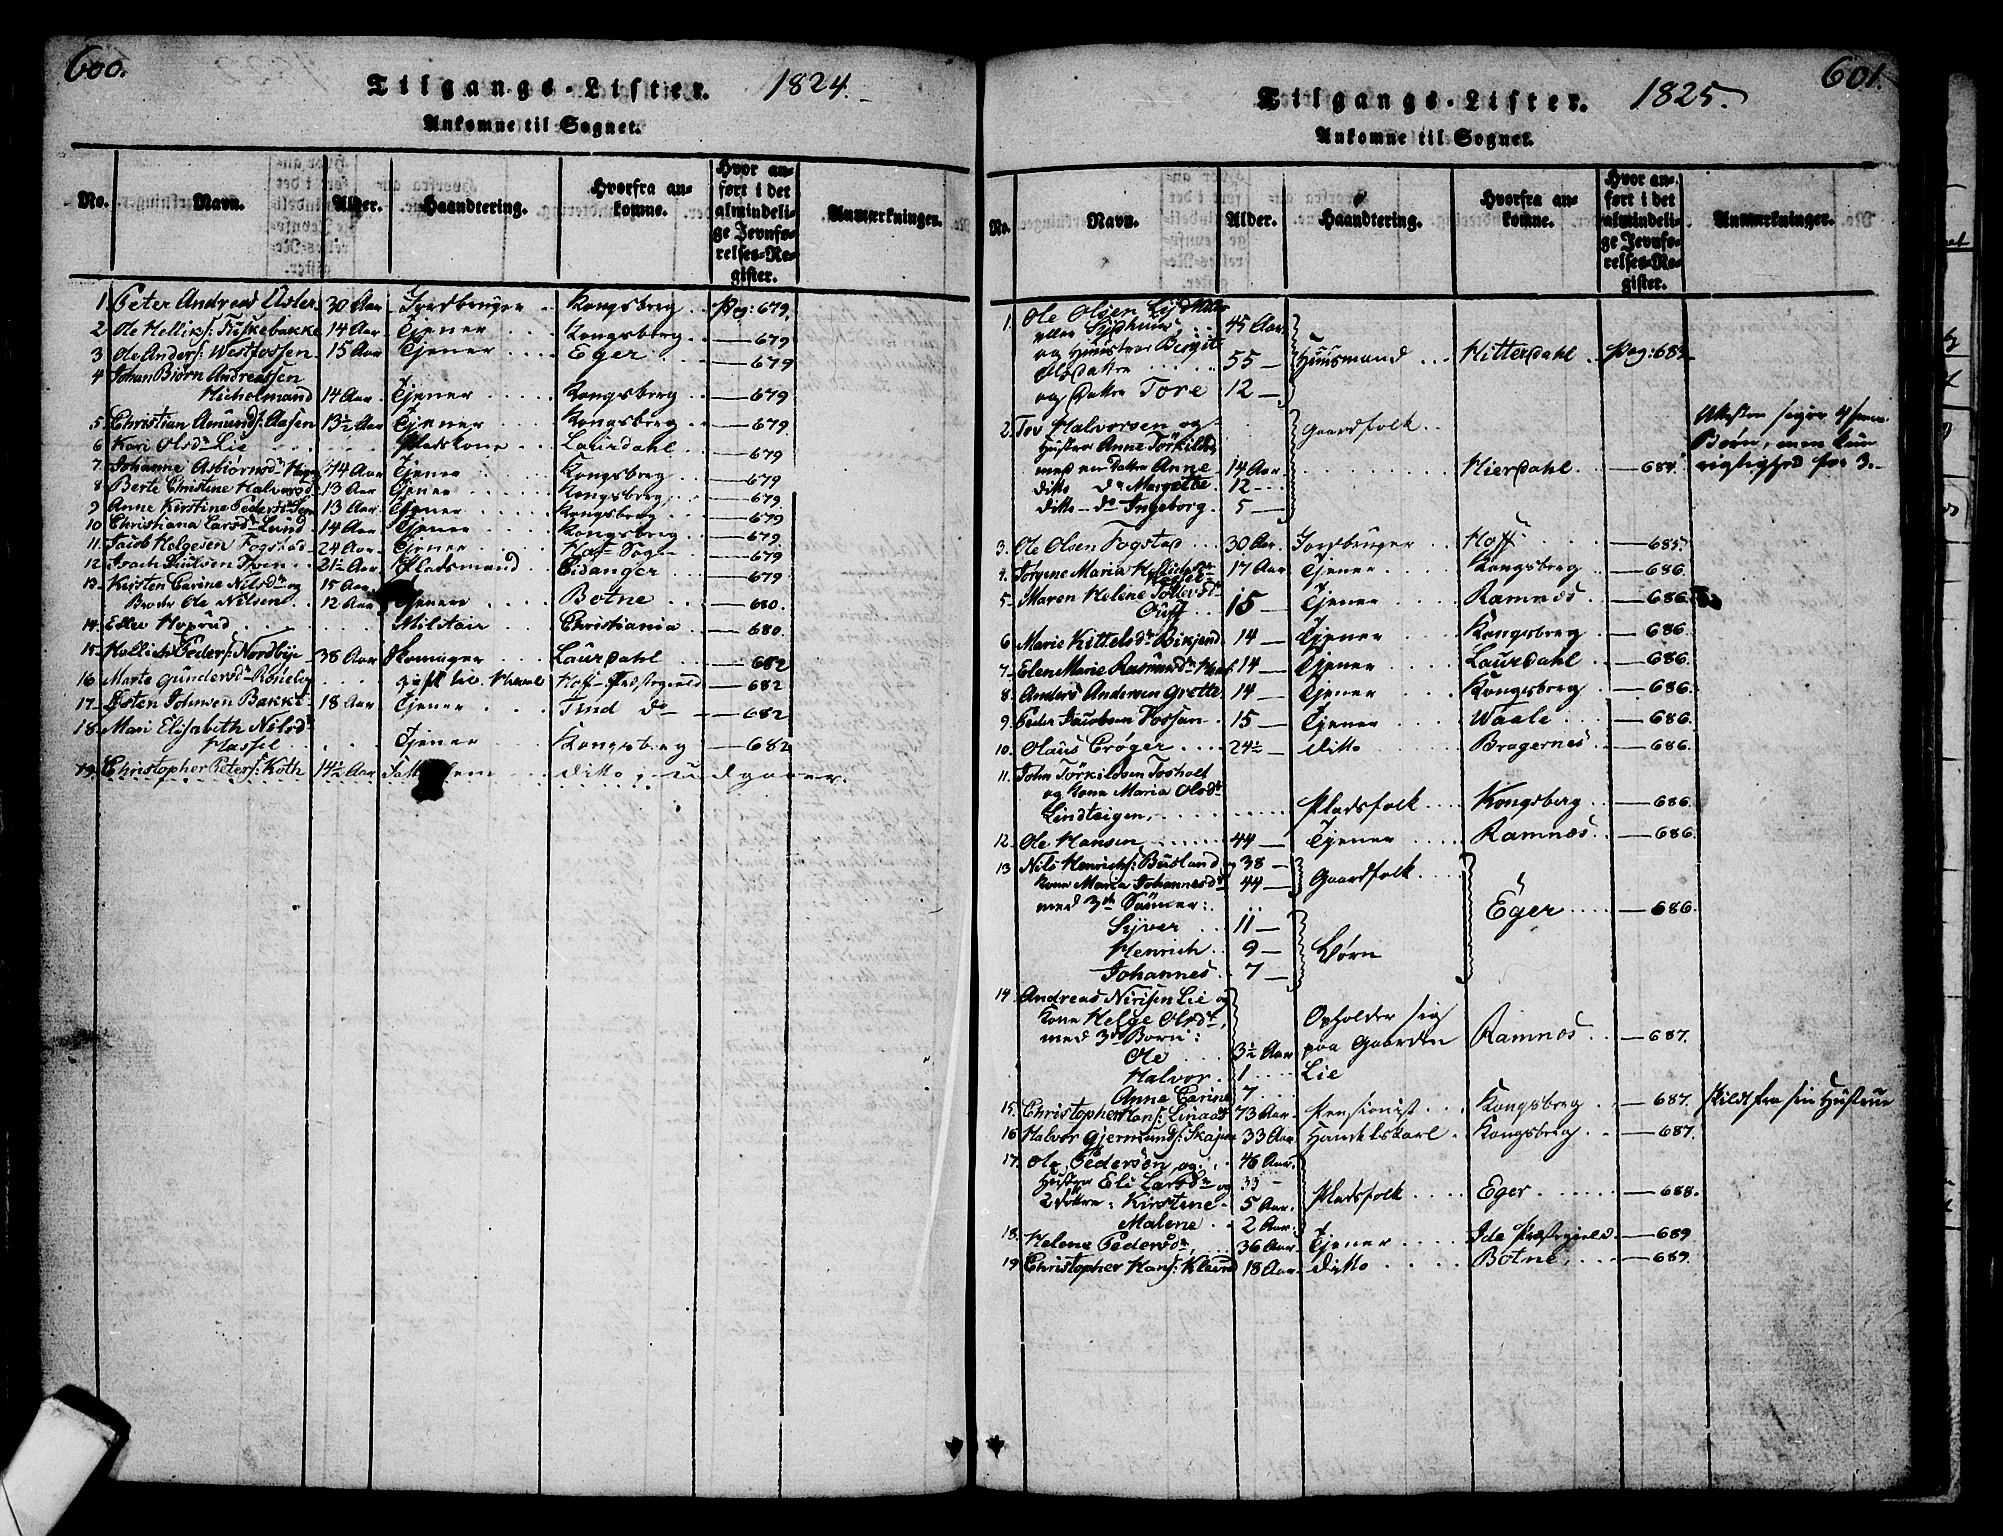 600.
Tilgangs-Lister. 1824.
Ankomne til Sognet.
No. Navn. Alder. Haandtering. Hvorfra ankomne. Hvor anført i det almindelige Jevnførelses-Register. Anmærkninger.
1. Peter Andreas Asler 30 Aar Jordbruger Kongsberg Pag: 679.
2 Ole Helliks: Fiskebakke 14 Aar Tjener Kongsberg 679
3 Ole Anders: Westfossen 15 Aar Tjener Eger 679
4 Johan Biørn Andreassen
14 Aar Tjener Kongsberg 679
5. Christian Amunds: Aasen 13½ Aar Tjener Kongsberg 679.
6 Kari Olsdr Lie Pladskone Laurdahl 679
7. Johanne Asbiørnsdr 14 Aar Tjener Kongsberg 679
8 Berte Christine Halvorsdr 13 Aar Tjener Kongsberg 679.
9 Anne Kirstine Pedersdr 13 Aar Tjener Kongsberg 679
10 Christiana Larsdr Lund 14 Aar Tjener Kongsberg 679
11. Jacob Helgesen Fogstad 24 Aar Tjener Hof Sogn 679
12. Isach Juulsen 21½ Aar Pladsmand Eidanger 679
13. Kirsten Carine Nilsdr og 15 Aar
Broder Ole Nilsen 12 Aar Tjenere Botne 680.
14. Edler Hoprud Militair Christiania 680.
15. Hellich Peders: Nordbye 38 Aar Skomager Laurdahl 682
16 Marte Gundersdr Røneby Hof Præstegield 682
17. Østen Johnsen Bakke 18 Aar Tjener Tind do 682
18. Mari Elisabeth Nilsdr
Hassel Tjener Kongsberg 682
19. Christopher Peters: Koth 14½ Aar ditto, udgaaer.
601.
Tilgangs-Lister. 1825.
Ankomne til Sognet.
No. Navn. Alder. Haandtering. Hvorfra ankomne. Hvor anført i det almindelige Jevnførelses-Register. Anmærkninger.
1. Ole Olsen
eller Lysthuus 45 Aar
og Huustroe Birgit
Olsdatter 55 Huusmand Hitterdahl Pag: 683
og Datter Tore 12
2. Tov Halvorsen og Gaardfolk
Hustro Anne Torkildsdr
med en Datter Anne 14 Aar Hierdahl 684.
ditto do Margethe 12
ditto do Ingeborg 5
Attesten siger 4 smaa
Børn, men kun
rigtighed for 3.
3. Ole Olsen Fogstad 30 Aar Jordbruger Hoff 685.
4. Jørgine Maria 17 Aar Tjener Kongsberg 686.
5. Maren Helene Tollevsdr
15 Tjener Ramnæs 686
6 Marie Kittelsdr Bikjend 14 Tjener Kongsberg 686.
7. Elen Marie Rasmusdr 14 Tjener Laurdahl 686.
8. Anders Andersen Grette 14 Tjener Kongsberg 686.
9. Peder Jacobsen Fossan 15 Tjener Waale 686.
10. Olaus Crøger 24½ ditto Bragernes 686.
11. John Torkildsen Tosholt
og Kone Maria Olsdr
Lindteigen Pladsfolk Kongsberg 686.
12. Ole Hansen 44 Tjener Ramnæs 686.
13 Nils Henrichs: Busland og 38
Kone Maria Johannesdr 44 Gaardfolk
med 3de Sønner: Eger 686.
Syver 11
Henrich 9 Børn
Johannes 7
14. Andreas Nirisen Lie og
Kone Helge Olsdr Opholder sig
med 3de Børn: paa Gaarden Ramnæs 687.
Ole 3½ Aar Lie
Halvor 1
Anne Carine 7
15. Christopher Hans: Linaas 73 Aar Pensionist Kongsberg 687. skildt fra sin Hustrue
16 Halvor Gjermunds: Skajem 33 Aar Handelskarl Kongsberg 687.
17. Ole Pedersen og 46 Aar
Hustro Eli Larsdr og 33
2 Døttre: Kirstine 5 Aar Pladsfolk Eger 688.
Malene 2 Aar
18. Helene Pedersdr 36 Aar Tjener Ide Præstegield 689
19 Christopher Hans: Klevud 18 Aar ditto Botne 689.